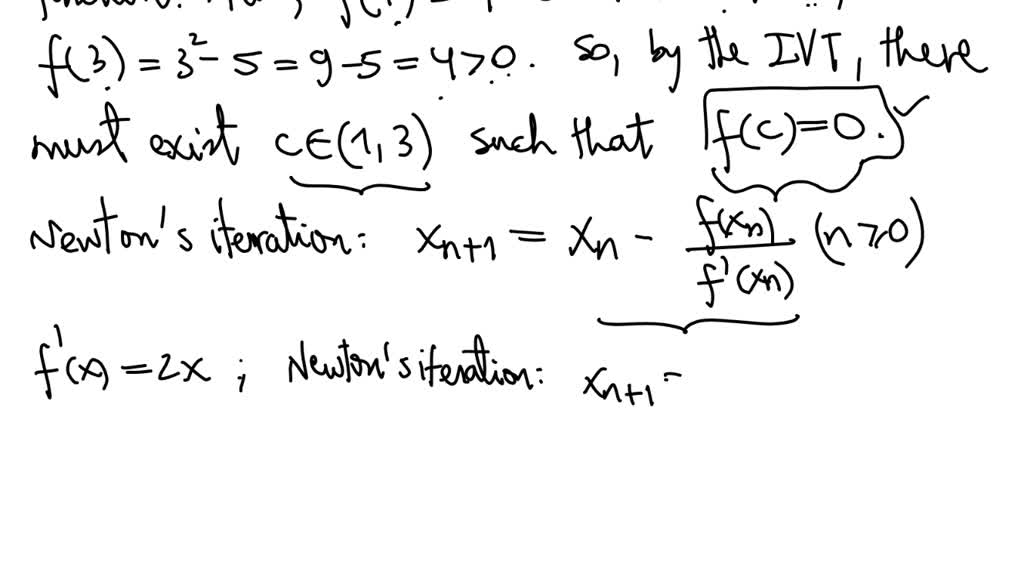 f(3) = 3² - 5 = 9 - 5 = 4 > 0. so, by the IVT, there
must exist c∈(1,3) such that f(c) = 0. ✓
Newton's iteration: xₙ₊₁ = xₙ - f(xₙ)/f'(xₙ) (n ≥ 0)
f'(x) = 2x ; Newton's iteration: xₙ₊₁ =